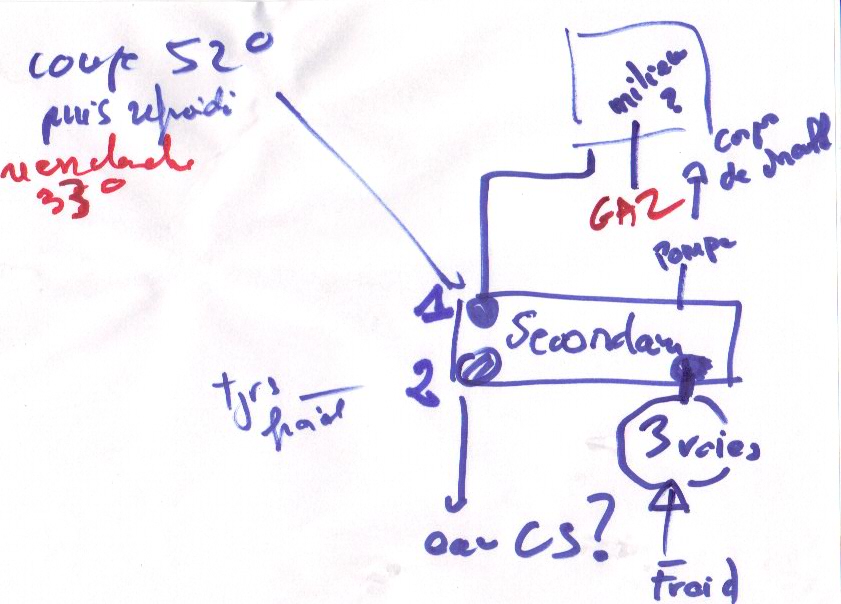 coupe 52°
puis refroidi
réenclache
33°
milieu
?
corps
de chauffe
GAZ
Pompe
1
Secondaire
2
tjrs
froid
3 voies
eau CS?
Froid